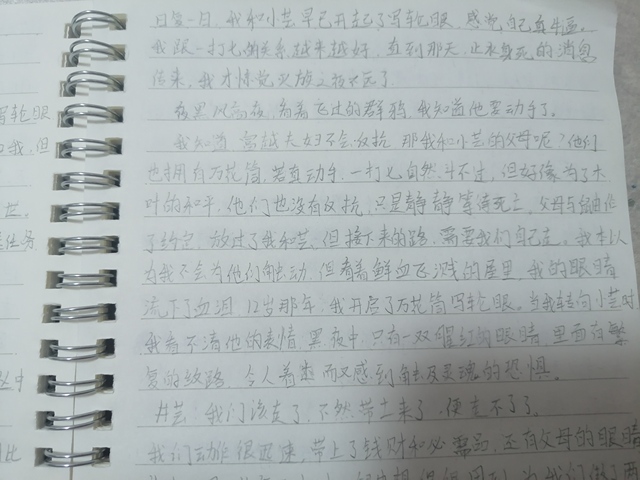 日复一日，我和小芸早已开起了写轮眼，感觉自己真牛逼。
我跟一打七的关系越来越好，直到那天，止水身死的消息
传来，我才惊觉灭族之夜不远了
夜黑风高夜，看着飞过的群鸦，我知道他要动手了。
我知道，富越夫妇不会反抗，那我和小芸的父母呢？他们
也拥有万花筒，若真动手，一打七自然斗不过，但好像为了木
叶的和平，他们也没有反抗，只是静静等待死亡，父母与鼬作
了约定，放过了我和芸，但接下来的路，需要我们自己走。我本以
为我不会为他们触动，但看着鲜血飞溅的屋里，我的眼睛
流下了血泪，12岁那年，我开启了万花筒写轮眼。当我转向小芸时
我看不清他的表情，黑夜中，只有一双猩红的眼睛，里面有繁
复的纹路，令人着迷而又感到触及灵魂的恐惧。
井芸：我们该走了，不然带土来了，便走不了了。
我们动作很迅速，带上了钱财和必需品，还有父母的眼睛
写轮眼
但
任务
中
比